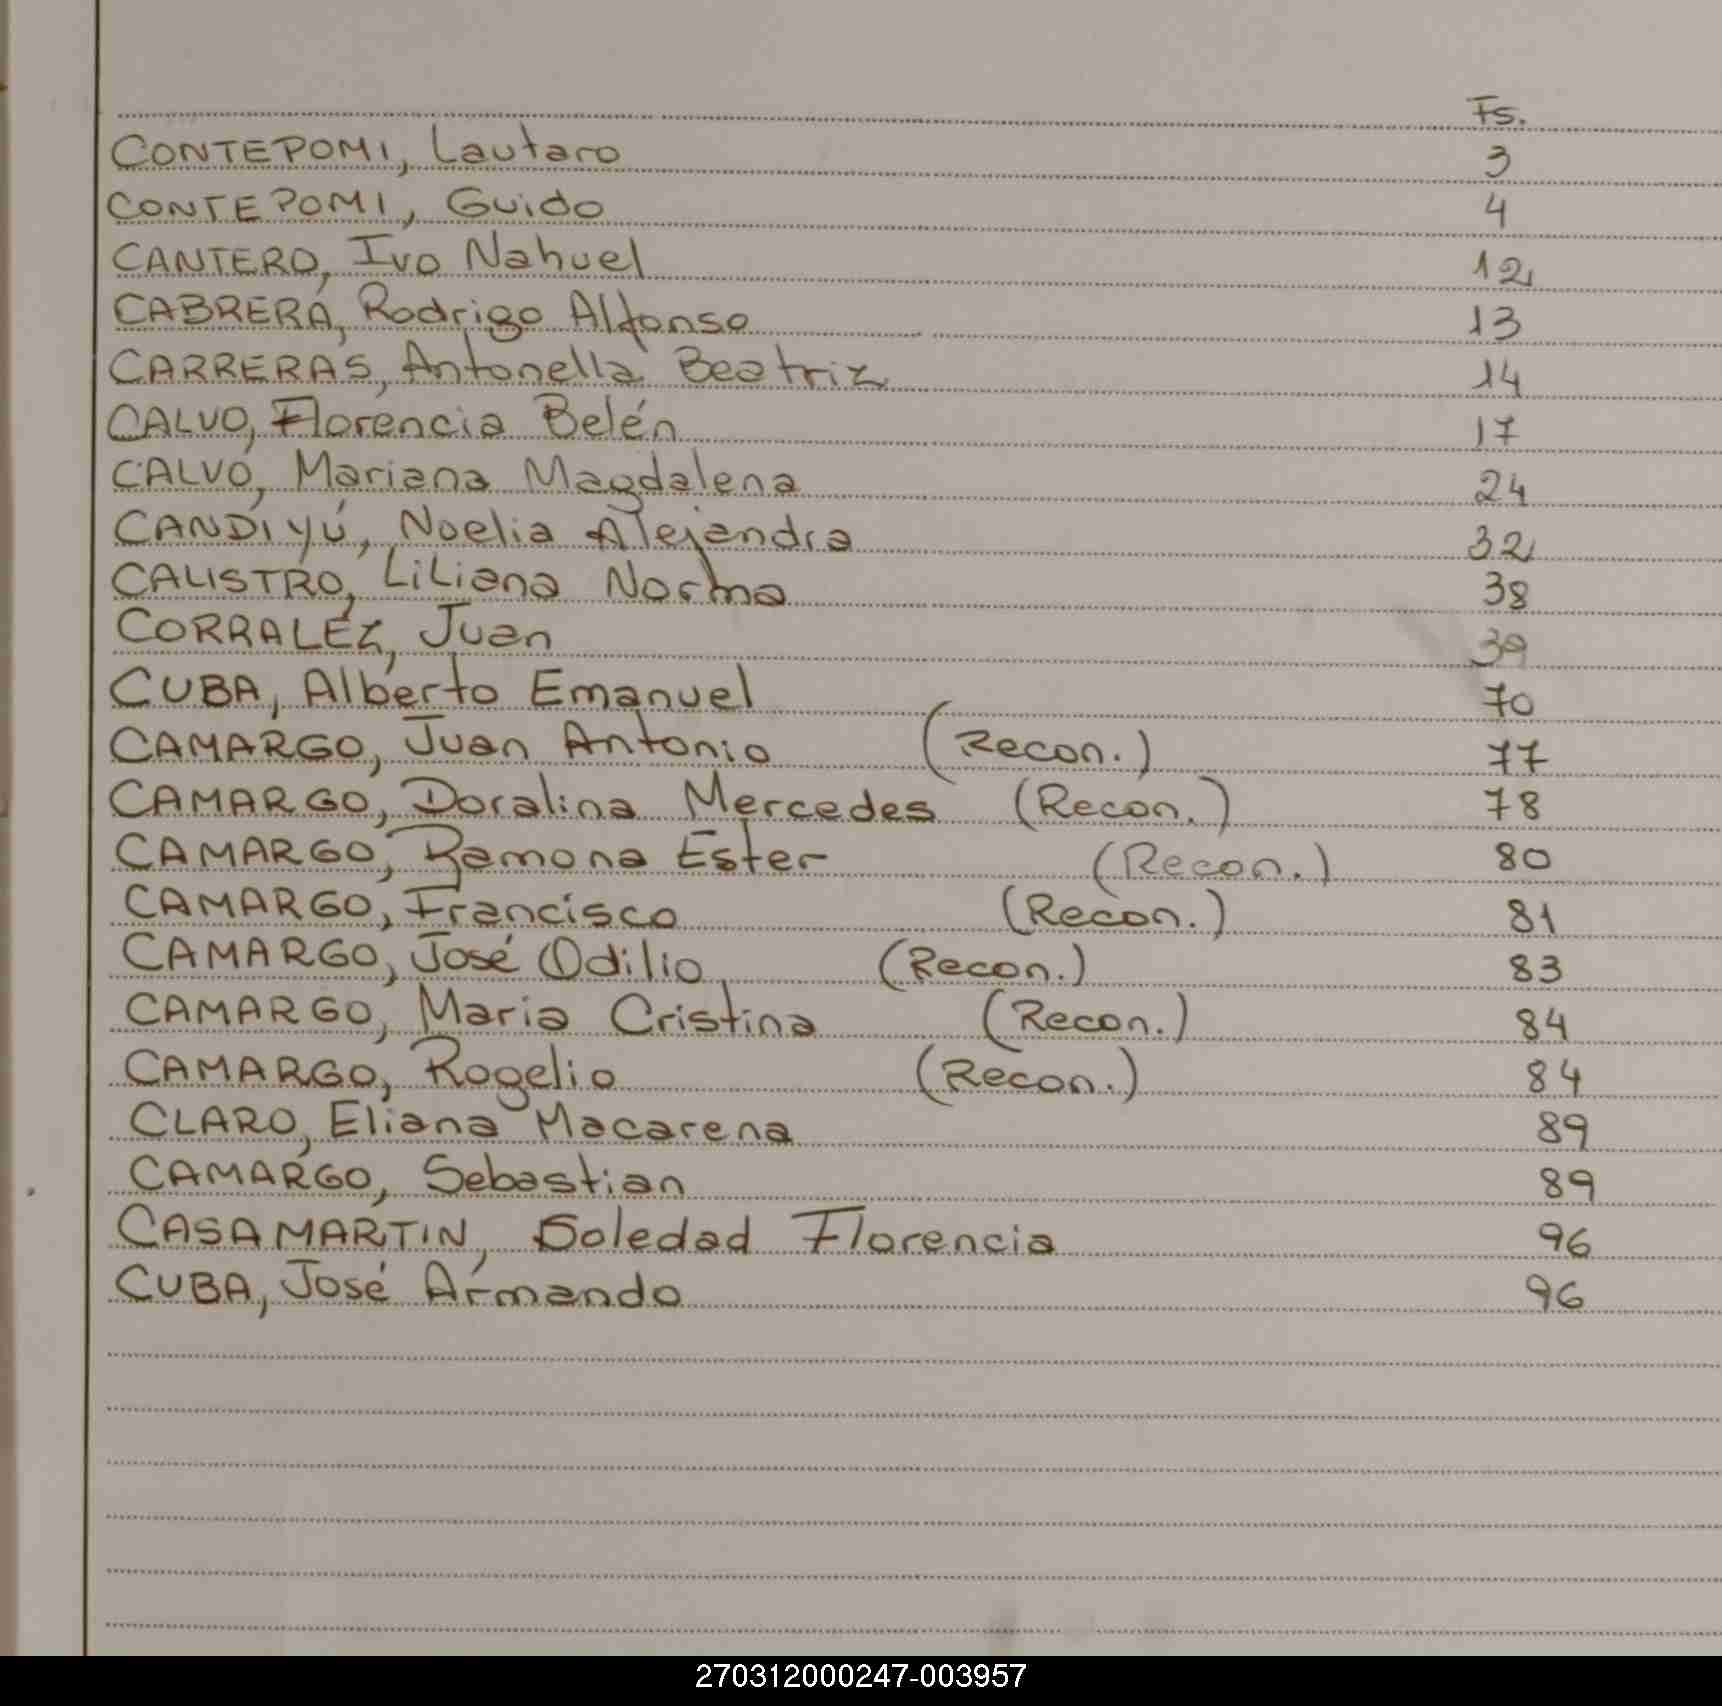 Fs.
CONTEPOMI, Lautaro 3
CONTEPOMI, Guido 4
CANTERO, Ivo Nahuel 12
CABRERA, Rodrigo Alfonso 13
CARRERAS, Antonella Beatriz 14
CALVO, Florencia Belén 17
CALVO, Mariana Magdalena 24
CANDIYÚ, Noelia Alejandra 32
CALISTRO, Liliana Norma 38
CORRALEZ, Juan 39
CUBA, Alberto Emanuel 70
CAMARGO, Juan Antonio (Recon.) 77
CAMARGO, Doralina Mercedes (Recon.) 78
CAMARGO, Ramona Ester (Recon.) 80
CAMARGO, Francisco (Recon.) 81
CAMARGO, José Odilio (Recon.) 83
CAMARGO, Maria Cristina (Recon.) 84
CAMARGO, Rogelio (Recon.) 84
CLARO, Eliana Macarena 89
CAMARGO, Sebastian 89
CASAMARTIN, Soledad Florencia 96
CUBA, José Armando 96
270312000247-003957